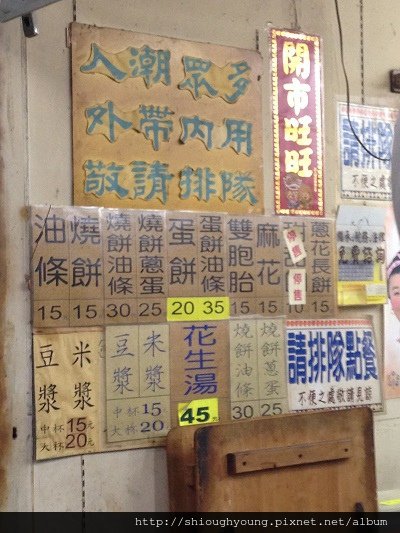 入潮眾多
外帶內用
敬請排隊
開市旺旺
請排隊
不便之處
油條 15
燒餅 15
燒餅油條 30
燒餅蔥蛋 25
蛋餅 20
蛋餅油條 35
雙胞胎 15
麻花 15
售
售
蔥花長餅 15
豆漿
米漿
中杯 15元
大杯 20元
豆漿
米漿
中杯 15
大杯 20
花生湯 45
燒餅油條 30
燒餅蔥蛋 25
請排隊點餐
不便之處敬請見諒
http://shioughyoung.pixnet.net/album